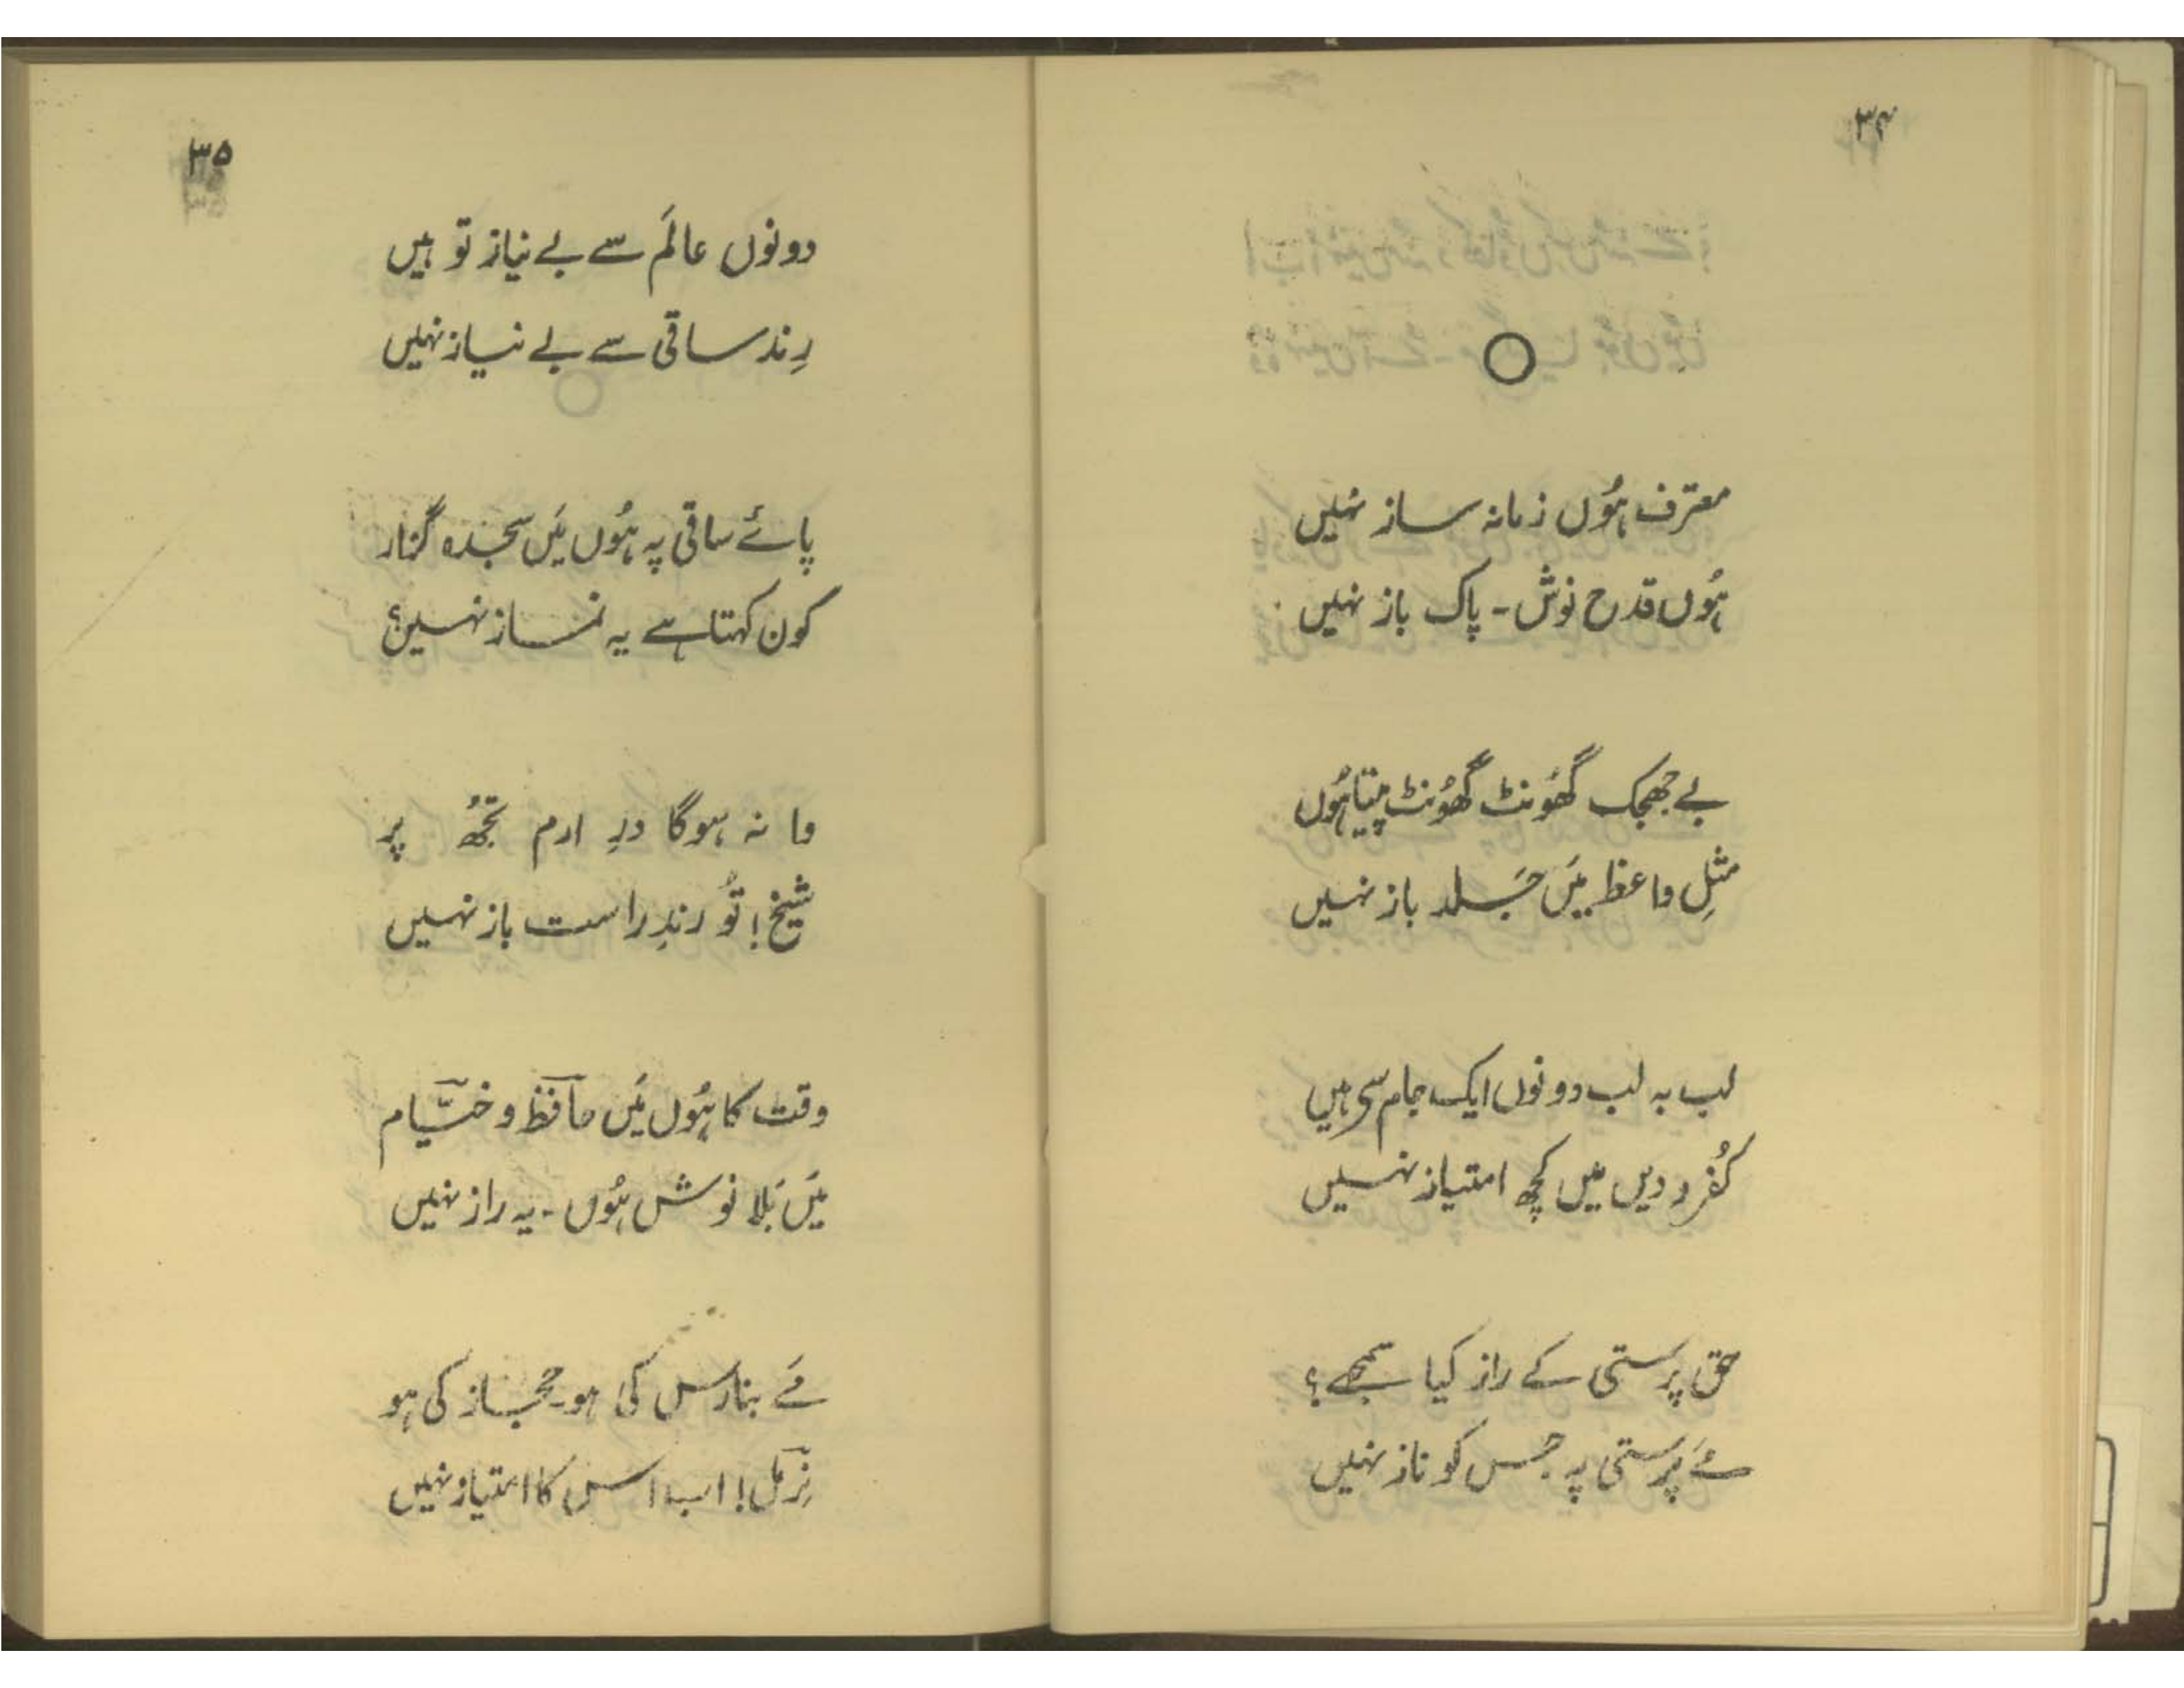 ۳۴
معترف ہُوں زمانہ ساز نہیں
ہُوں قدح نوش ۔ پاک باز نہیں
بے جھجک گھُونٹ گھُونٹ پیتا ہُوں
مثلِ واعظ میَں جَلد باز نہیں
لب بہ لب دونوں ایک جام سے ہیں
کُفر و دیں میں کچھ امتیاز نہیں
حق پرستی کے راز کیا سمجھے؟
مَے پرستی پہ جس کو ناز نہیں
۳۵
دونوں عالَم سے بے نیاز تو ہیں
رِند ساقی سے بے نیاز نہیں
پائے ساقی پہ ہُوں میَں سجدہ گزار
کون کہتا ہے یہ نماز نہیں؟
وا نہ ہوگا درِ ارم تجھُ پر
شیخ! تُو رندِ راست باز نہیں
وقت کا ہُوں میَں حافظؔ و خیّامؔ
میَں بَلا نوش ہُوں ۔ یہ راز نہیں
مَے بنارس کی ہو ۔ حجاز کی ہو
نِرملؔ! اب اس کا امتیاز نہیں